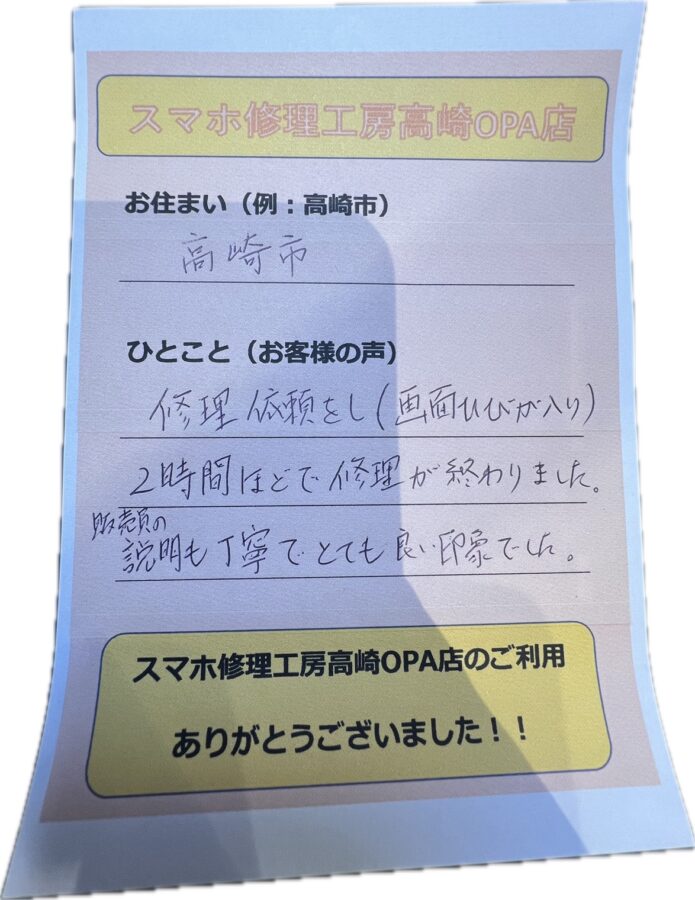 スマホ修理工房高崎OPA店
お住まい（例：高崎市）
高崎市
ひとこと（お客様の声）
修理依頼をし(画面ひびが入り)
2時間ほどで修理が終わりました。
販売員の
説明も丁寧でとても良い印象でした。
スマホ修理工房高崎OPA店のご利用
ありがとうございました！！